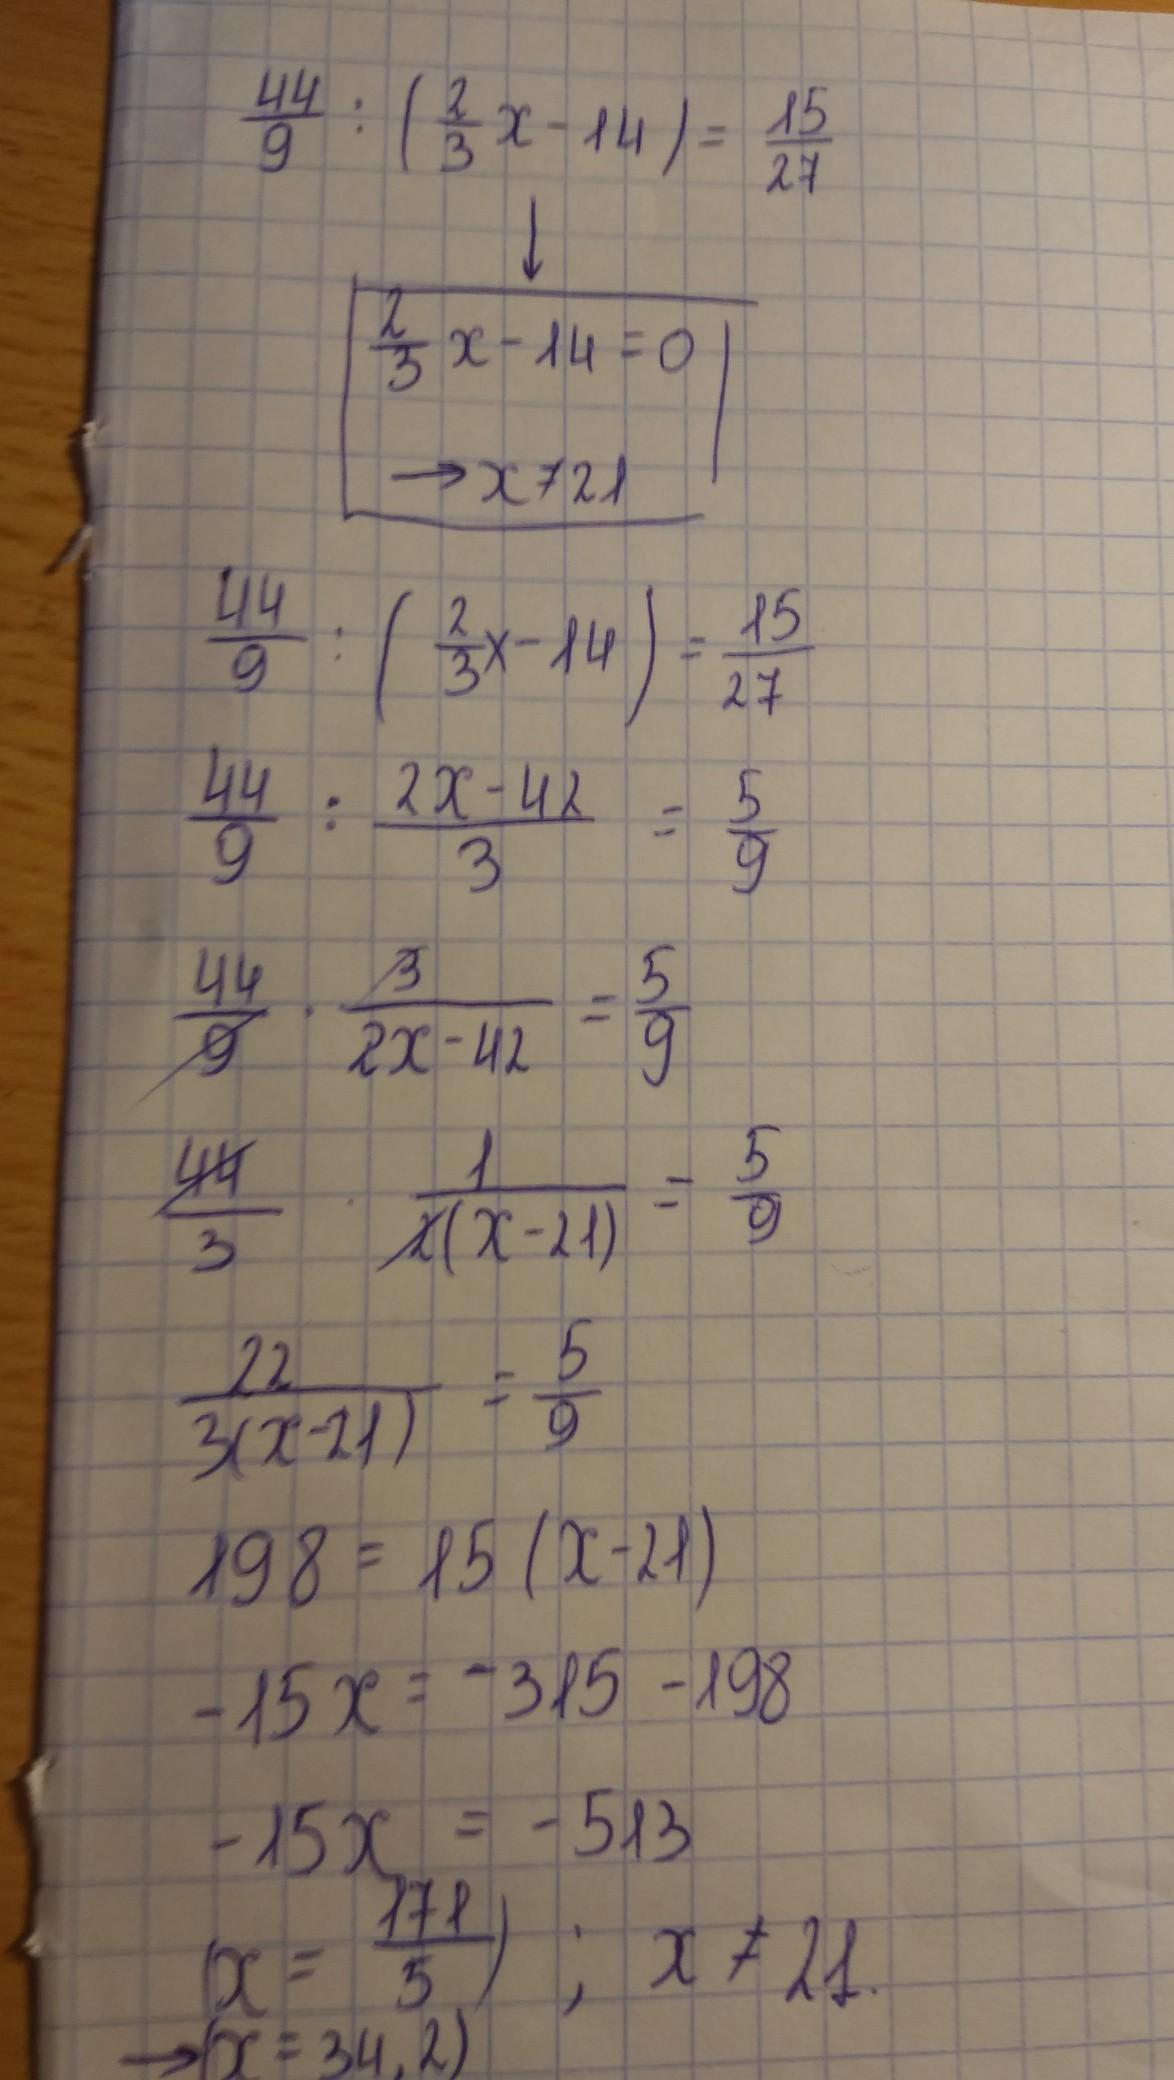 44/9 : (2/3 x - 14) = 15/27
↓
2/3 x - 14 = 0
→ x ≠ 21
44/9 : (2/3 x - 14) = 15/27
44/9 : (2x - 42)/3 = 5/9
44/9 · 3/(2x - 42) = 5/9
44/3 · 1/(2(x - 21)) = 5/9
22/(3(x - 21)) = 5/9
198 = 15(x - 21)
-15x = -315 - 198
-15x = -513
(x = 171/5) ; x ≠ 21.
→ (x = 34,2)